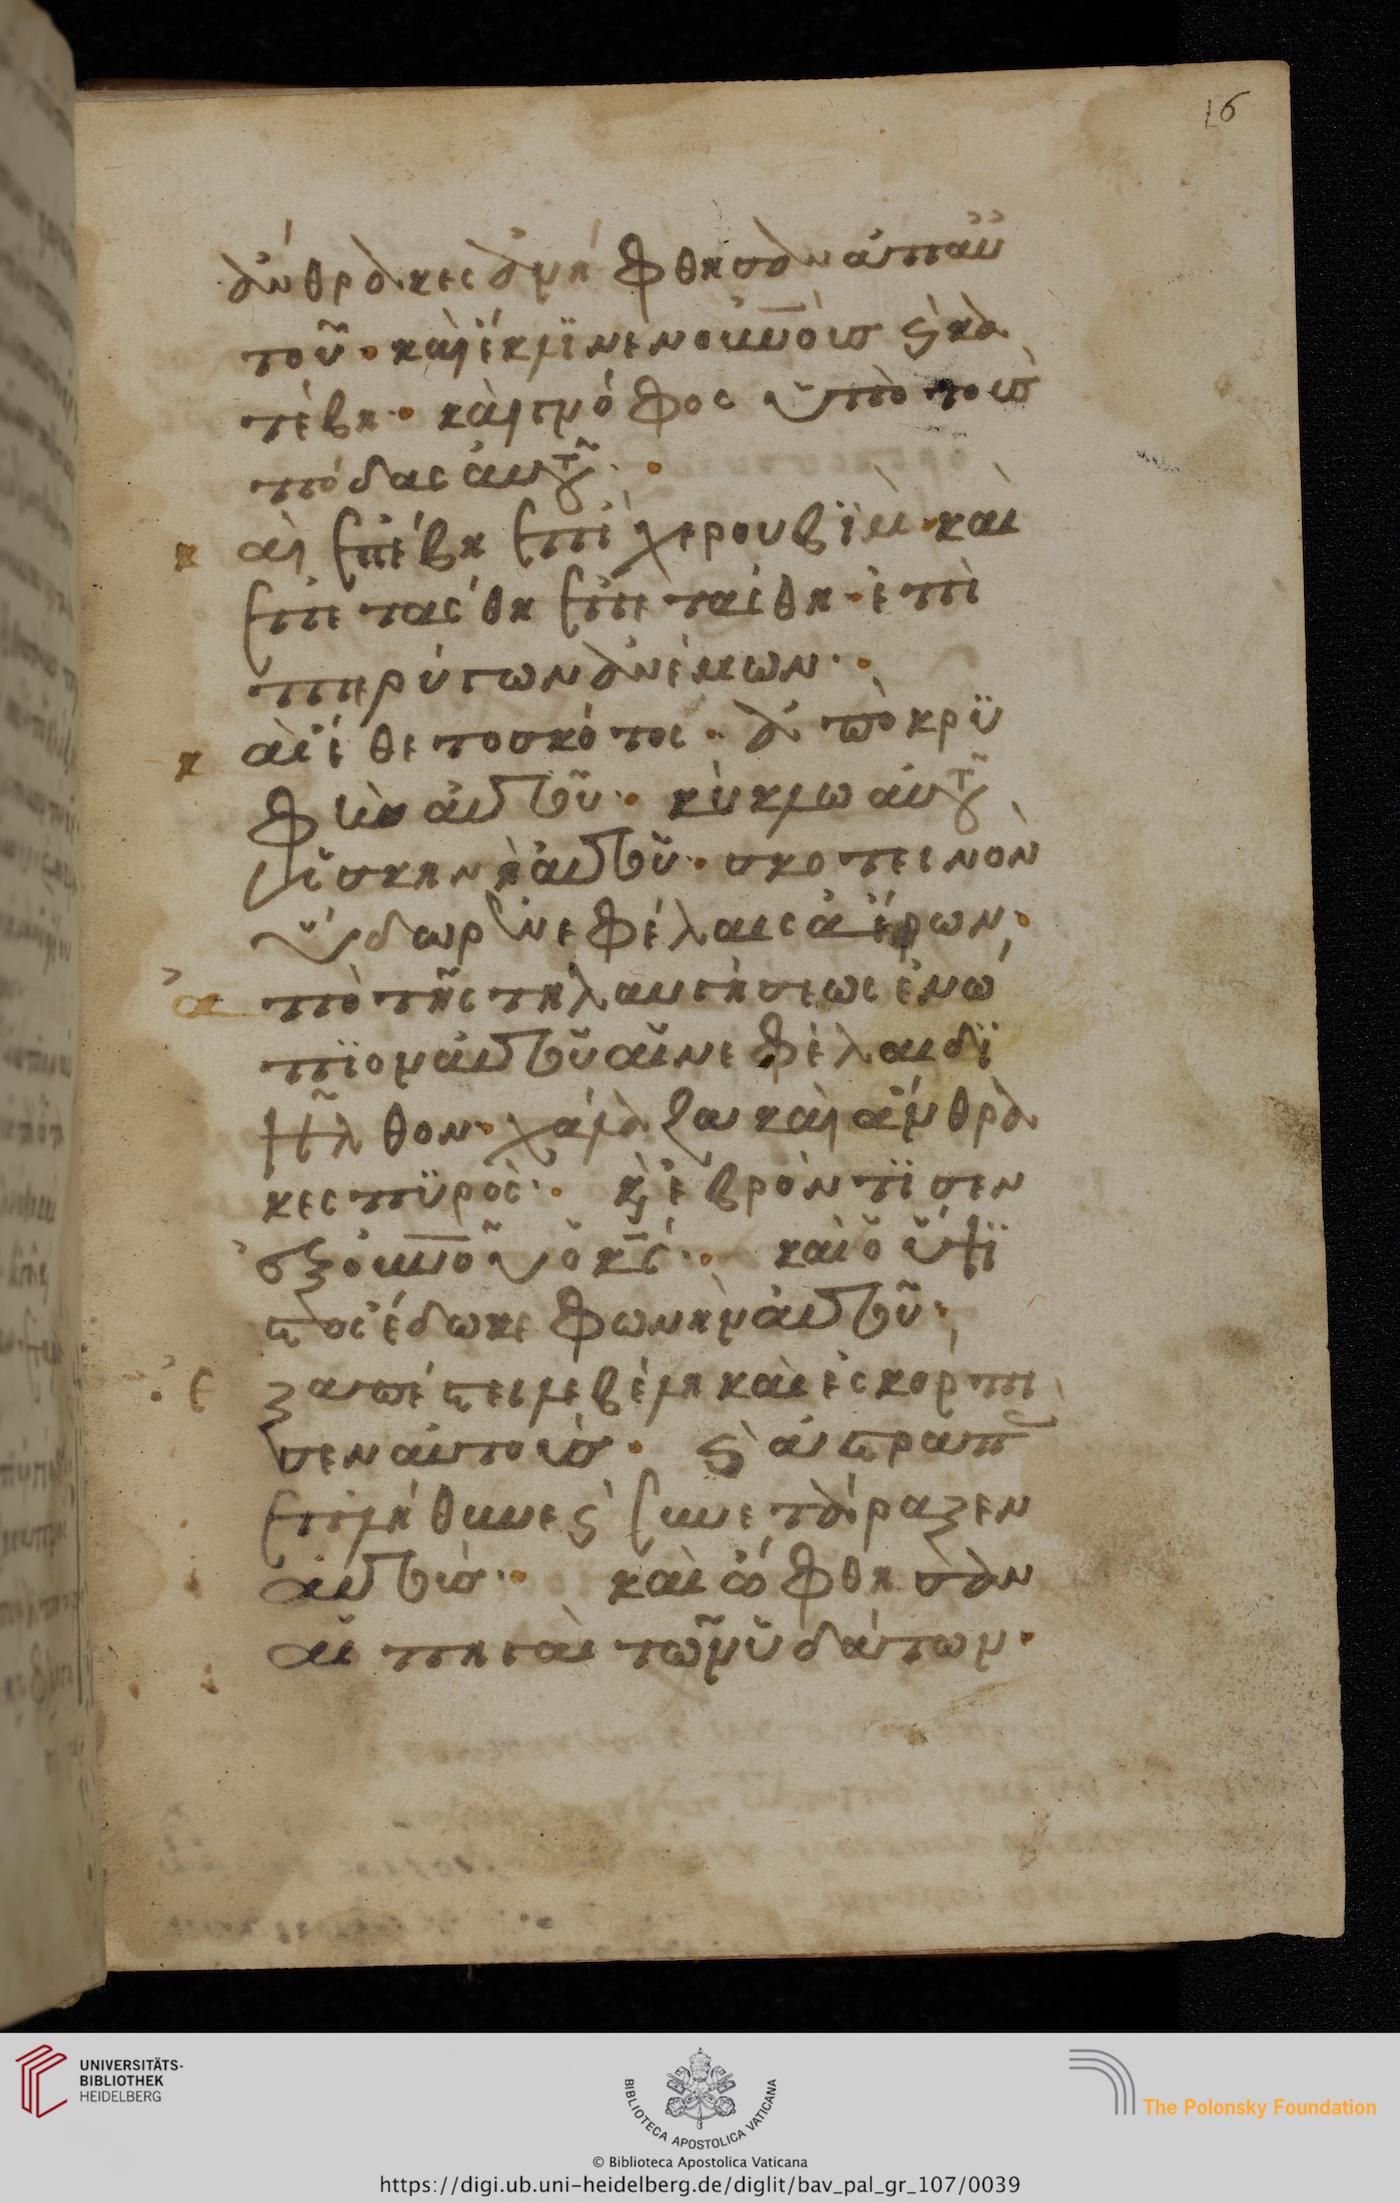 16
ἄνθρακες ἀνήφθησαν ἀπαυ
τοῦ· καὶ ἔκλϊνεν οὐ̅νοὺσ ϗ κα
τέβη· καὶ γνόφος ὑπὸ τοὺσ
πόδας αὐτοῦ·
κ αὶ ἐπέβη ἐπὶ χερουβϊμ· καὶ
ἐπετάσθη ἐπετάσθη· ἐπὶ
πτερύγων ἀνέμων·
κ αὶ ἔθετο σκότος· ἀποκρϋ
φὴν αὐτοῦ· κύκλω αὐτοῦ
ἡ σκηνὴ αὐτοῦ· σκοτεινὸν
ὕδωρ ἐν νεφέλαις ἀέρων·
ἀ πὸ τῆς τηλαυγήσεως ἐνώ
πϊον αὐτοῦ αἱ νεφέλαι δϊ
ῆλθον· χάλαζα καὶ ἄνθρα
κες πϋρός· ϗ ἐβρόντϊσεν
ἐξ οὐ̅νοῦ ὁ κ̅ς· καὶ ὁ ὕψϊ
στος ἔδωκε φωνὴν αὐτοῦ·
ἐ ξαπέστειλε βέλη καὶ ἐσκόρπι
σεν αὐτοὺσ· ϗ ἀστραπὰς
ἐπλήθυνε ϗ συνετάραξεν
αὐτοὺσ· καὶ ὤφθησαν
αἱ πηγαὶ τῶν ὑδάτων·
UNIVERSITÄTS-
BIBLIOTHEK
HEIDELBERG
BIBLIOTECA APOSTOLICA VATICANA
The Polonsky Foundation
© Biblioteca Apostolica Vaticana
https://digi.ub.uni-heidelberg.de/diglit/bav_pal_gr_107/0039